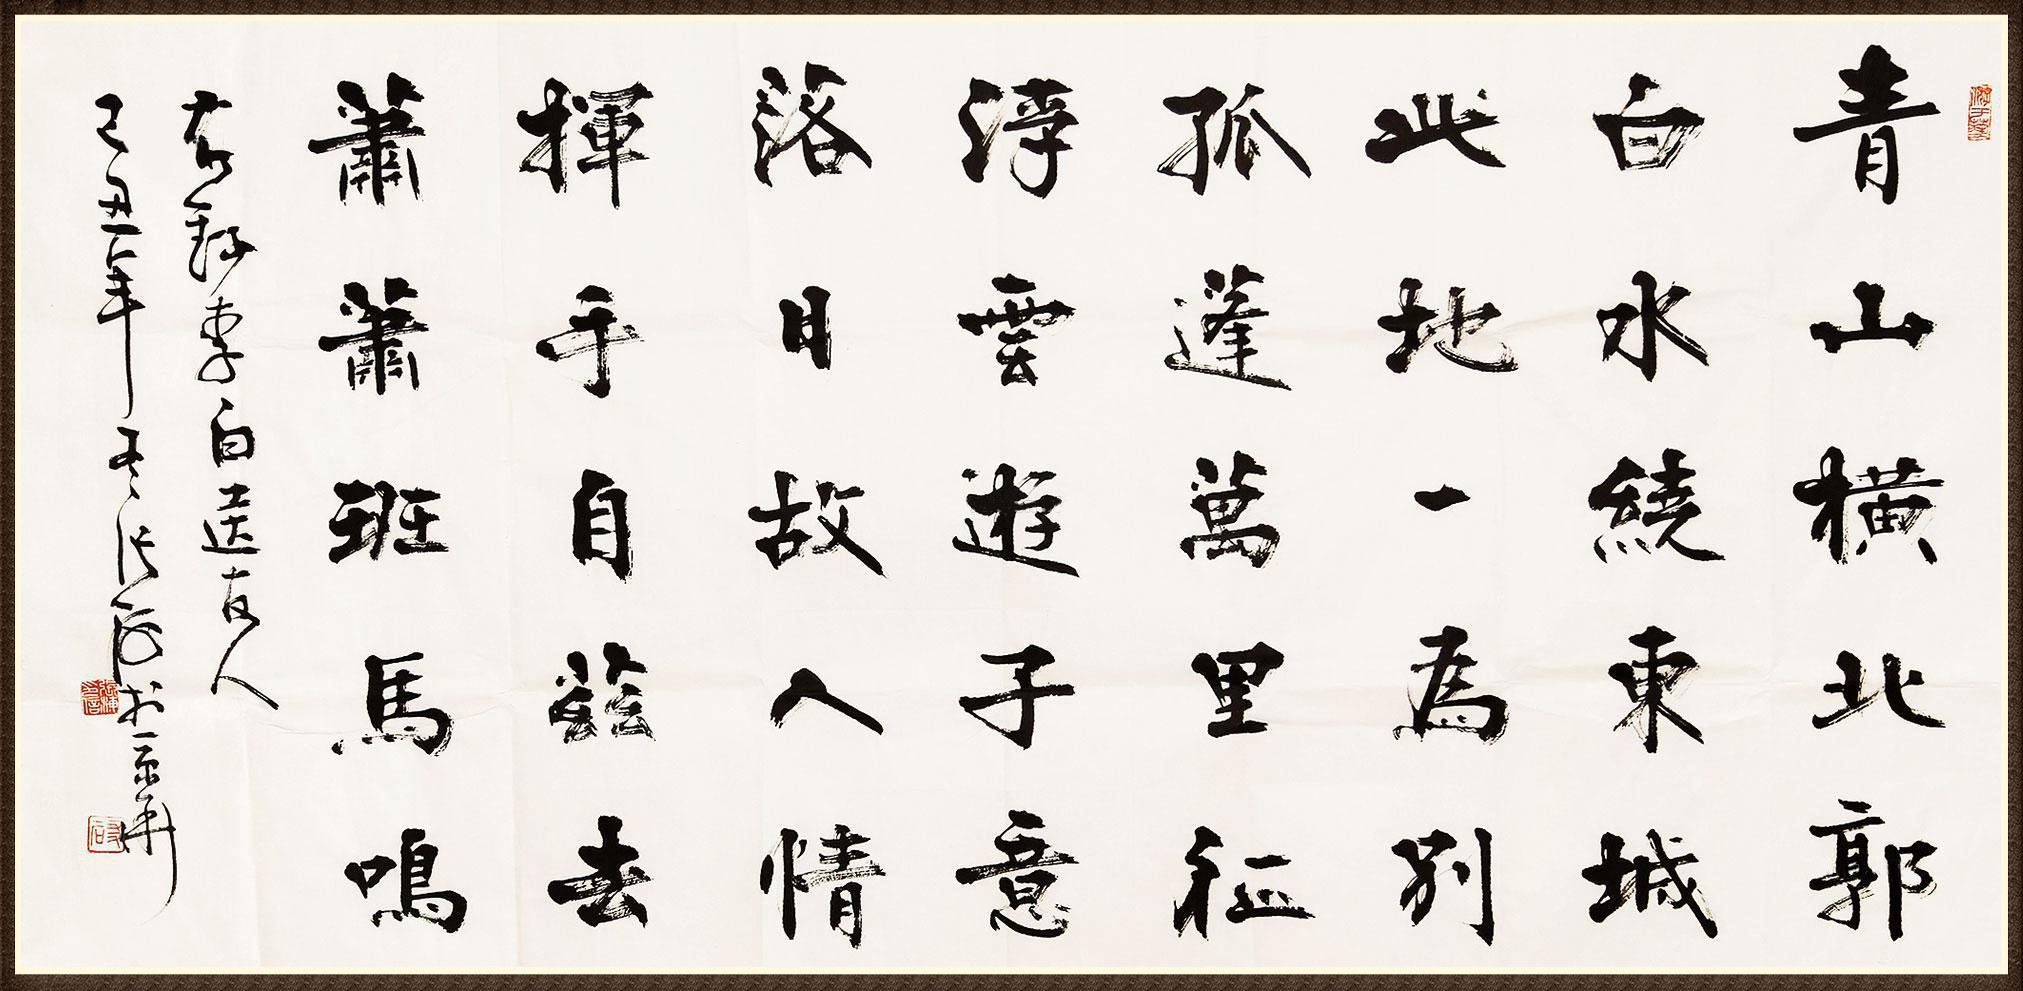 青山橫北郭
白水繞東城
此地一為別
孤蓬萬里征
浮雲遊子意
落日故人情
揮手自茲去
蕭蕭班馬鳴
右錄李白送友人
己丑年冬張海於京華